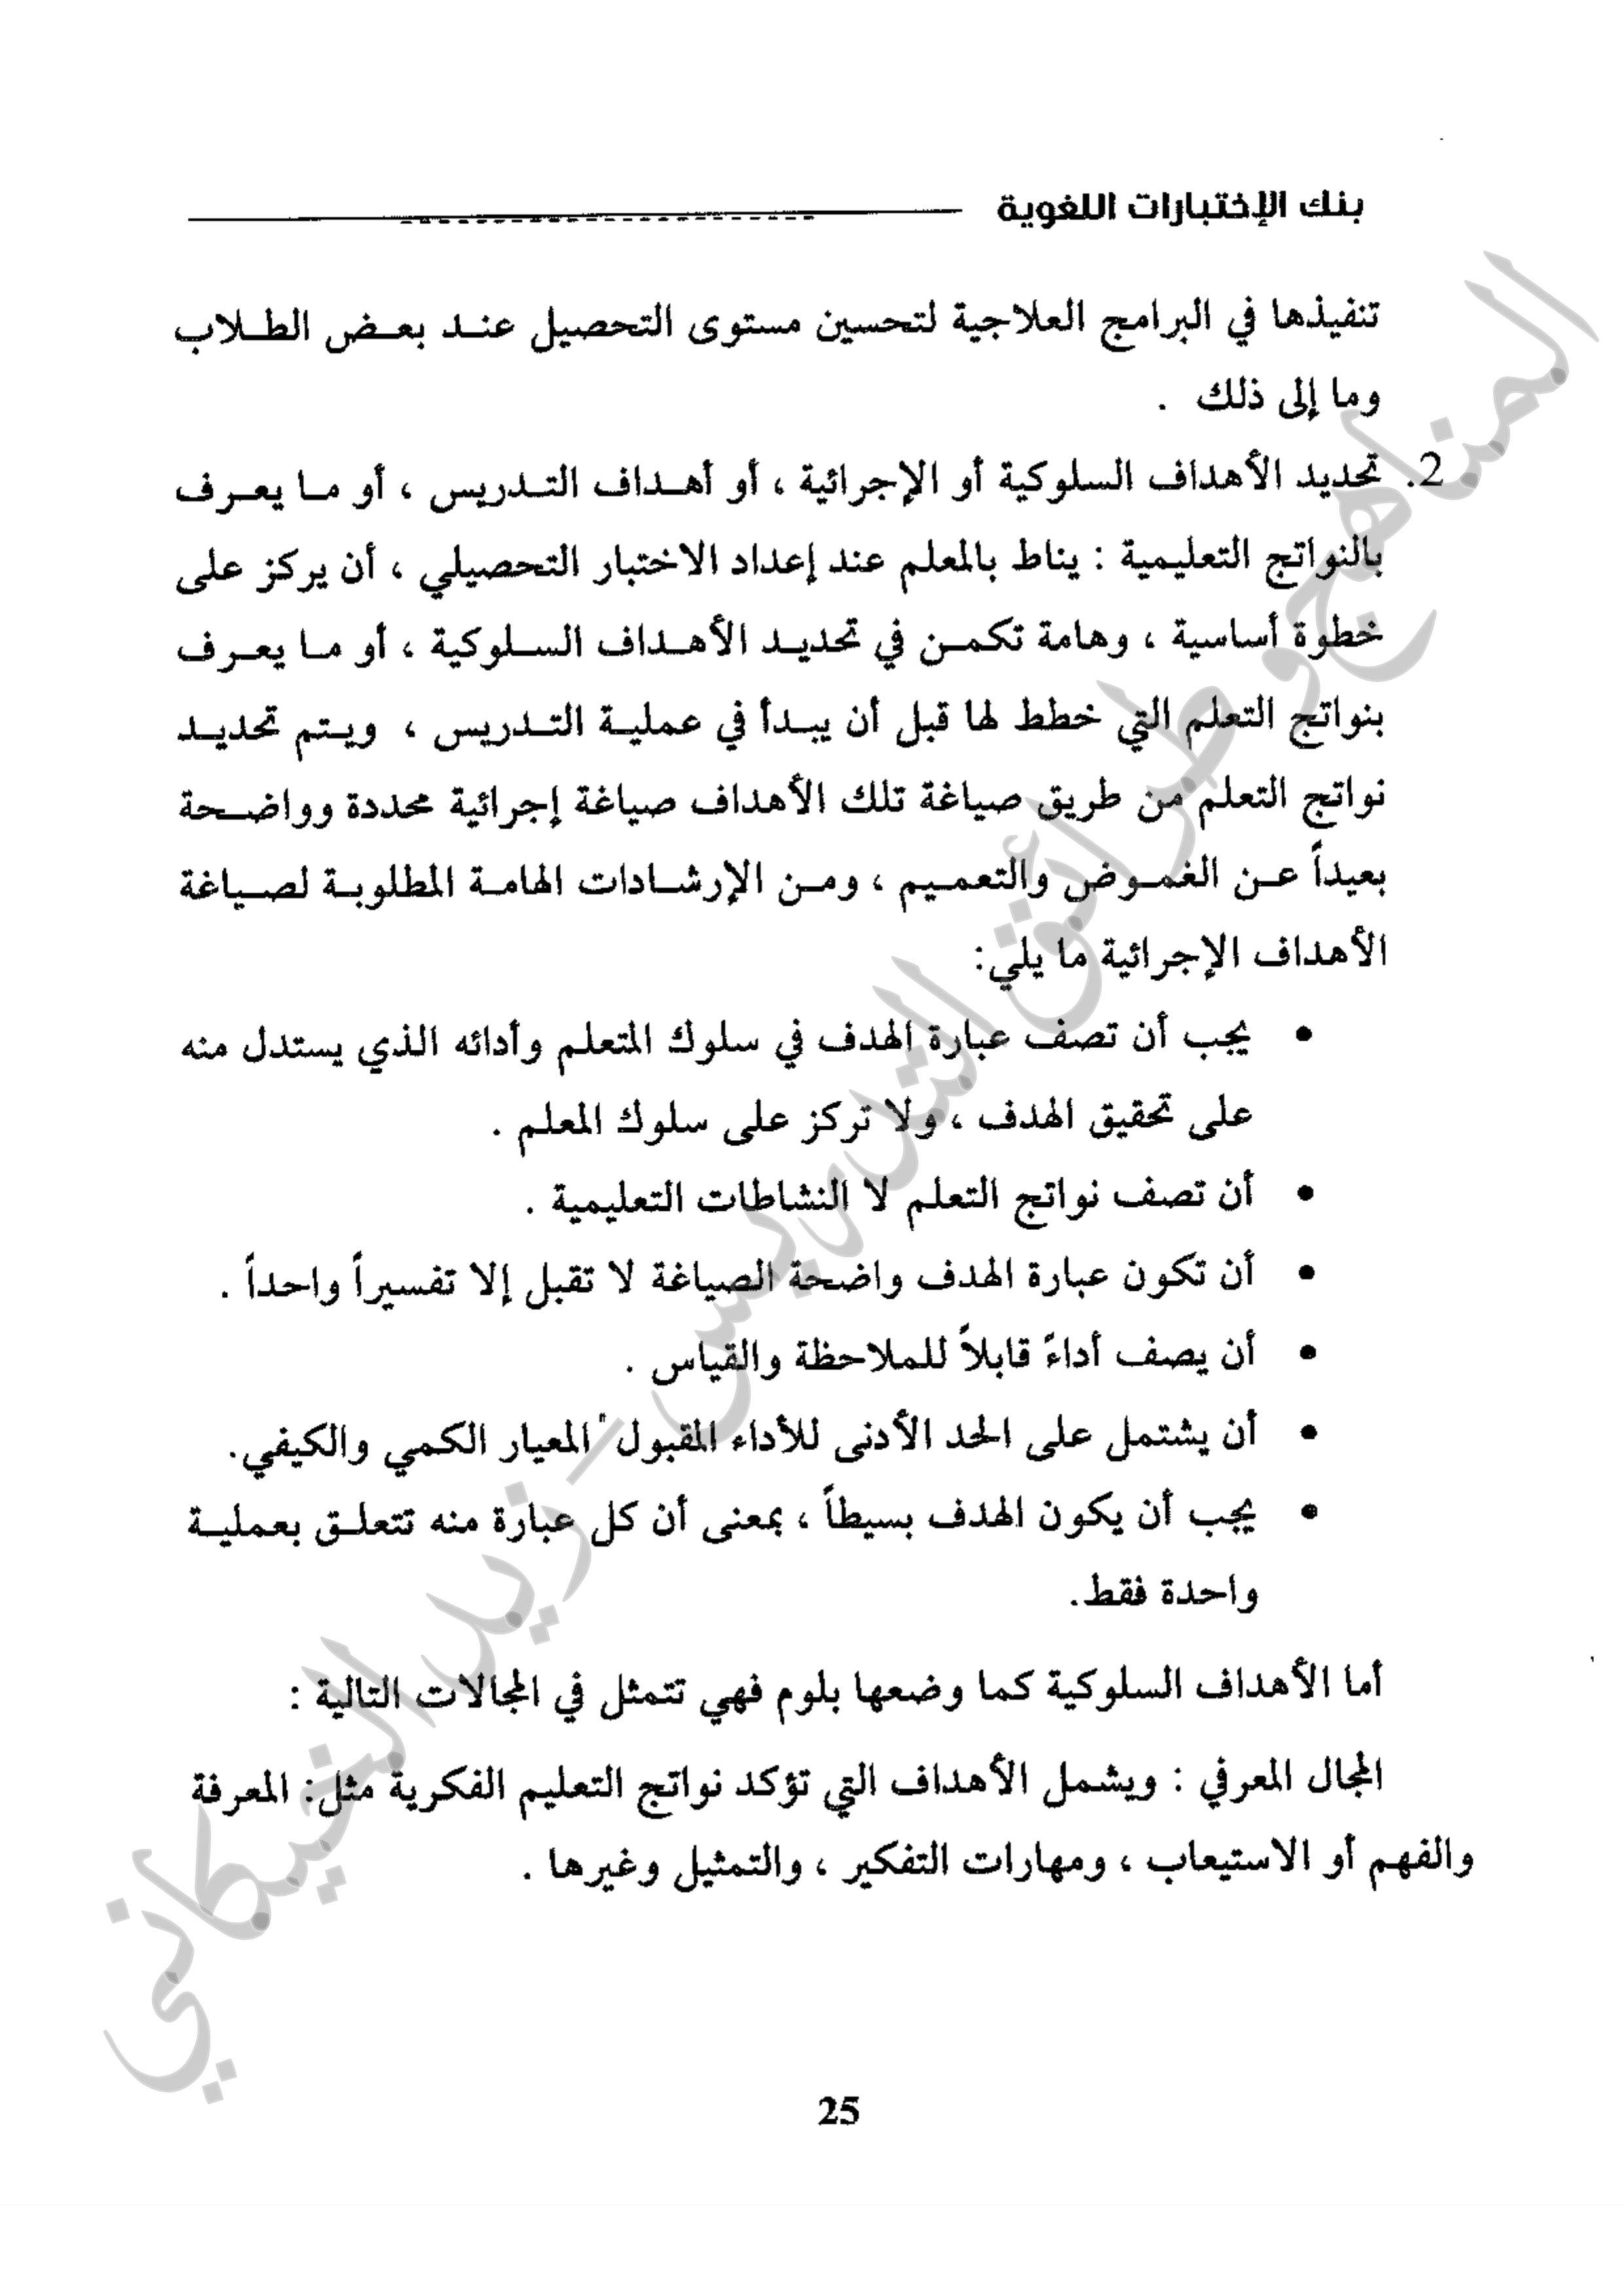 بنك الإختبارات اللغوية
تنفيذها في البرامج العلاجية لتحسين مستوى التحصيل عند بعض الطلاب
وما إلى ذلك .
2. تحديد الأهداف السلوكية أو الإجرائية ، أو أهداف التدريس ، أو ما يعرف
بالنواتج التعليمية : يناط بالمعلم عند إعداد الاختبار التحصيلي ، أن يركز على
خطوة أساسية ، وهامة تكمن في تحديد الأهداف السلوكية ، أو ما يعرف
بنواتج التعلم التي خطط لها قبل أن يبدأ في عملية التدريس ، ويتم تحديد
نواتج التعلم من طريق صياغة تلك الأهداف صياغة إجرائية محددة وواضحة
بعيداً عن الغموض والتعميم ، ومن الإرشادات الهامة المطلوبة لصياغة
الأهداف الإجرائية ما يلي:
• يجب أن تصف عبارة الهدف في سلوك المتعلم وأدائه الذي يستدل منه
على تحقيق الهدف ، ولا تركز على سلوك المعلم .
• أن تصف نواتج التعلم لا النشاطات التعليمية .
• أن تكون عبارة الهدف واضحة الصياغة لا تقبل إلا تفسيراً واحداً .
• أن يصف أداءً قابلاً للملاحظة والقياس .
• أن يشتمل على الحد الأدنى للأداء المقبول "المعيار الكمي والكيفي.
• يجب أن يكون الهدف بسيطاً ، بمعنى أن كل عبارة منه تتعلق بعملية
واحدة فقط.
أما الأهداف السلوكية كما وضعها بلوم فهي تتمثل في المجالات التالية :
المجال المعرفي : ويشمل الأهداف التي تؤكد نواتج التعليم الفكرية مثل: المعرفة
والفهم أو الاستيعاب ، ومهارات التفكير ، والتمثيل وغيرها .
25
المناهج وطرائق التدريس - زيد الخيكاني